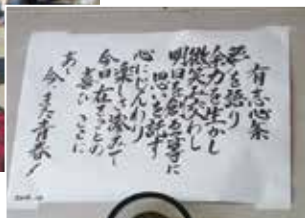 有志心条
夢を語り
余力を生かし
微笑み交わし
明日を創る等に
思いを託す
心にじんわり
楽しさ染みて
今日在ることの
喜び ここに
あゝ 今、また青春!